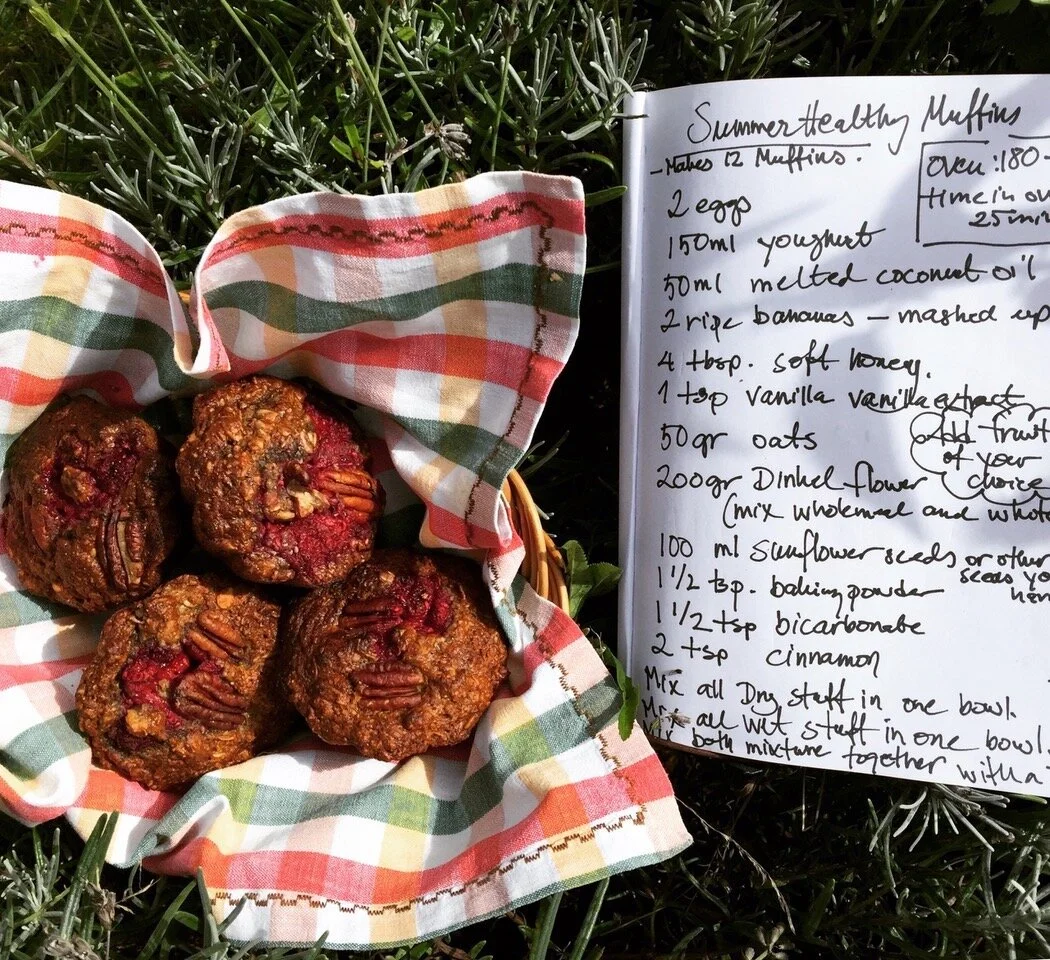 Summer Healthy Muffins
- Makes 12 Muffins.
Oven : 180-
time in ov
25 min
2 eggs
150ml youghurt
50ml melted coconut oil
2 ripe bananas – mashed up
4 tbsp. soft honey.
1 tsp vanilla vanilla extract
50gr oats
Add fruit
of your
choice
200gr Dinkel flower
(mix wholemeal and whole
100 ml Sunflower seeds or other
seeds yo
1 1/2 tsp. baking powder
1 1/2 tsp bicarbonate
2 tsp cinnamon
Mix all Dry stuff in one bowl.
Mix all wet stuff in one bowl.
Mix both mixture together with a